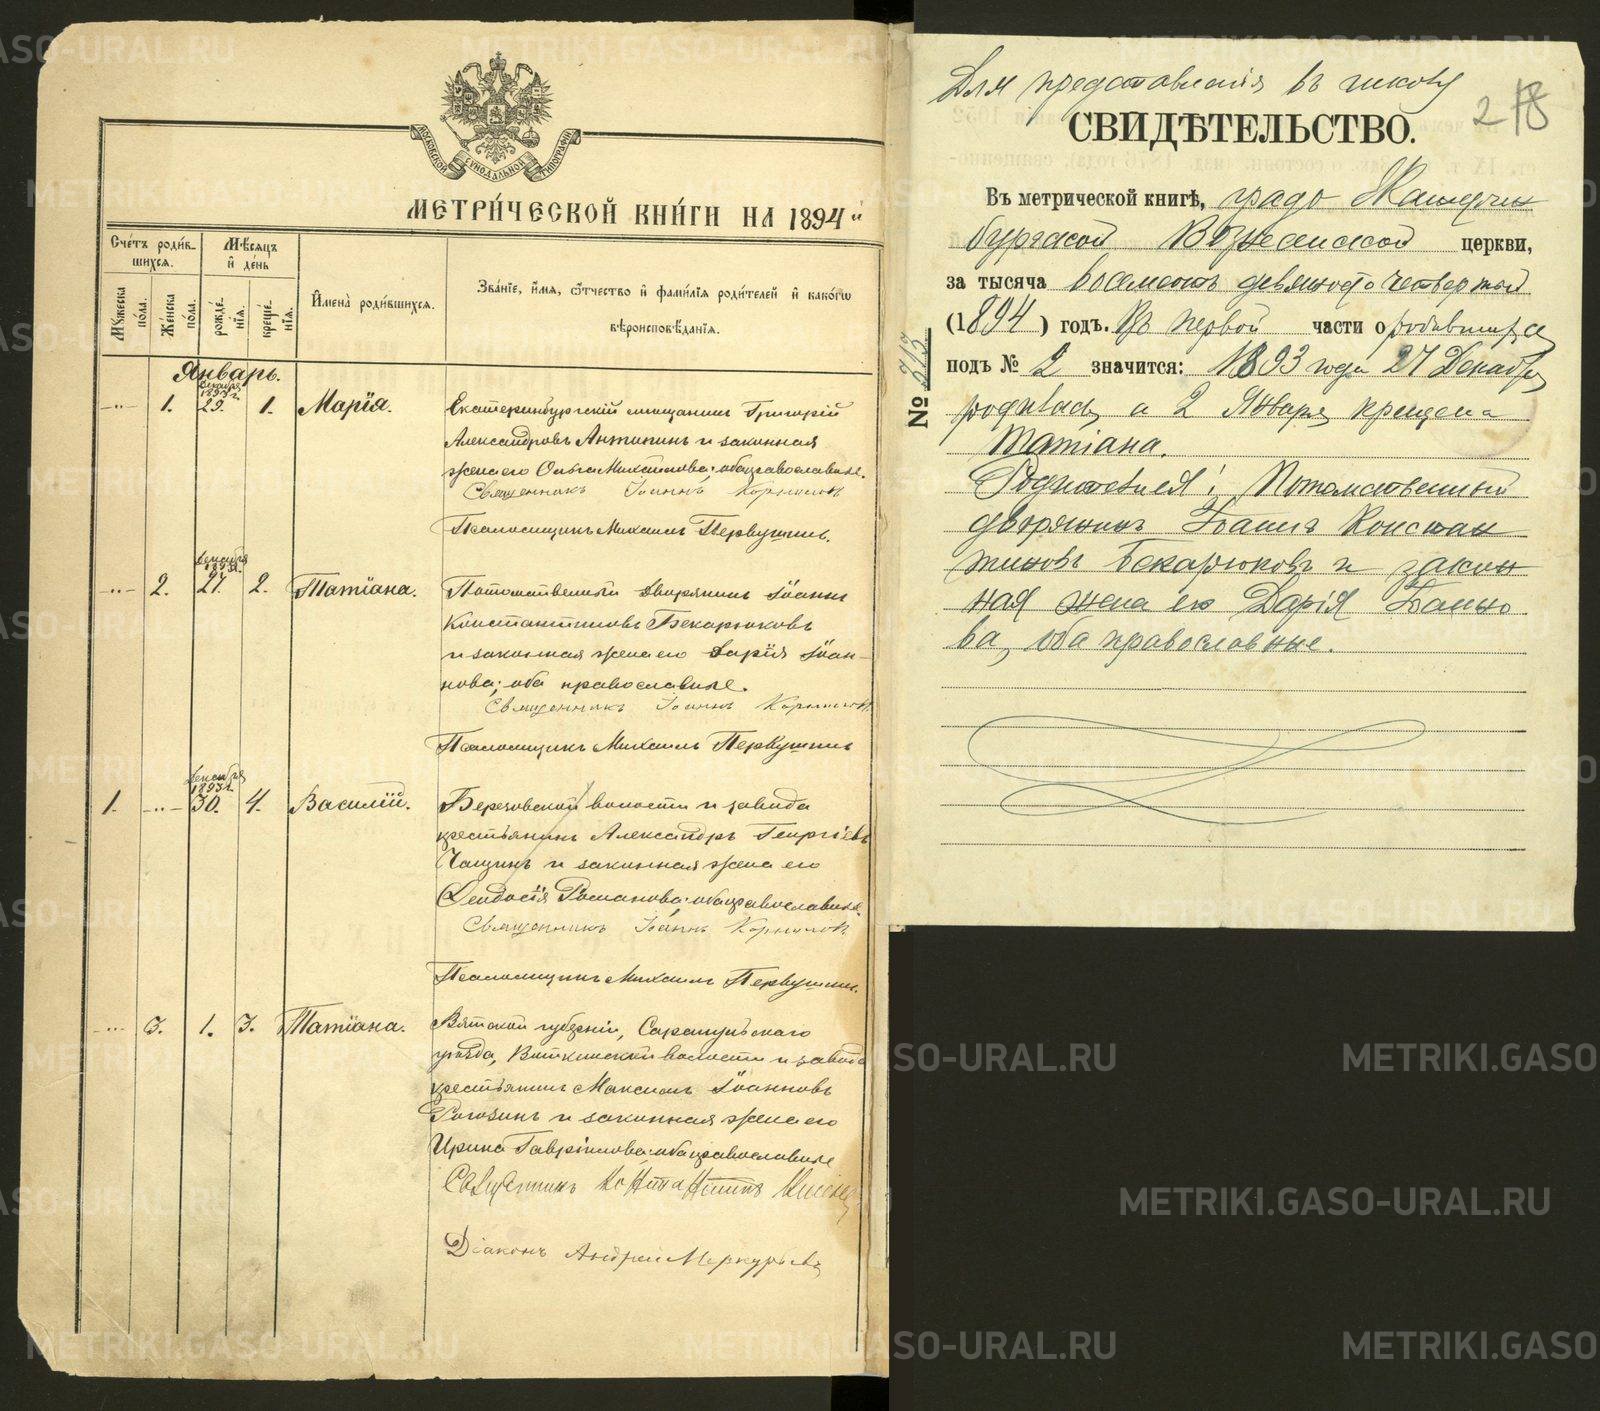 МОСКОВСКОЙ СУНОДАЛЬНОЙ ТИПОГРАФІИ
МЕТРИ́ЧЕСКОЙ КНИ́ГИ НА 1894
Сче́тъ роди́в-
шихся.
Мѣсяцъ
и де́нь
Му́жеска по́ла.
Же́нска по́ла.
рожде́нія.
креще́нія.
Имена̀ роди́вшихся.
Зва́ніе, и́мя, о́тчество и фами́лія роди́телей и како́гѡ
вѣроисповѣ́данія.
Январь.
Декабря
1893 г.
--- 1. 29. 1. Марія.
Екатеринбургскій мѣщанинъ Григорій
Александровъ Антипинъ и законная
жена его Ольга Михаилова; оба православные.
Священникъ Іоаннъ Корнилов
Псаломщикъ Михаилъ Первушинъ.
Декабря
1893 г.
--- 2. 27. 2. Татіана.
Потомственный Дворянинъ Іоаннъ
Константиновъ Бекарюковъ
и законная жена его Дарія Іоан-
нова; оба православные.
Священникъ Іоаннъ Корнилов
Псаломщикъ Михаилъ Первушинъ
Декабря
1893 г.
1. --- 30. 4. Василій.
Березовской волости и завода
крестьянинъ Александръ Георгіевъ
Чащинъ и законная жена его
Феодосія Романова; оба православные.
Священникъ Іоаннъ Корнилов
Псаломщикъ Михаилъ Первушинъ.
--- 3. 1. 3. Татіана.
Вятской губерніи, Сарапульскаго
уѣзда, Воткинской волости и завода
крестьянинъ Максимъ Іоанновъ
Рогозинъ и законная жена его
Ирина Гавріилова; оба православные
Священникъ Константинъ
Діаконъ Андрей Меркурьевъ
Для представленія въ школу
218
СВИДѢТЕЛЬСТВО.
Въ метрической книгѣ, градо Екатерин
бургской Вознесенской церкви,
за тысяча восемьсотъ девяносто четвертой
(1894) годъ. Въ первой части о родившихся
подъ № 2 значится: 1893 года 27 Декабря
родилась, а 2 Января крещена
Татіана.
Родители: Потомственный
дворянинъ Іоаннъ Констан
тиновъ Бекарюковъ и закон
ная жена его Дарія Іоанно
ва, оба православные.
№ 313
METRIKI.GASO-URAL.RU